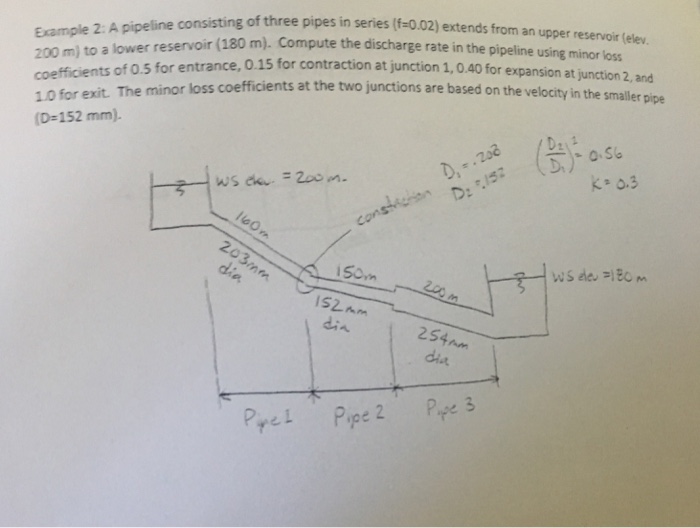 Example 2: A pipeline consisting of three pipes in series (f=0.02) extends from an upper reservoir (elev.
200 m) to a lower reservoir (180 m). Compute the discharge rate in the pipeline using minor loss
coefficients of 0.5 for entrance, 0.15 for contraction at junction 1, 0.40 for expansion at junction 2, and
1.0 for exit. The minor loss coefficients at the two junctions are based on the velocity in the smaller pipe
(D=152 mm).
D₁ = .203
D₂ = .152
(D₂/D₁)² = 0.56
K = 0.3
WS elev. = 200 m.
constriction
160m
203mm
dia
150m
152mm
dia
200m
254mm
dia
WS elev = 180 m
Pipe 1
Pipe 2
Pipe 3